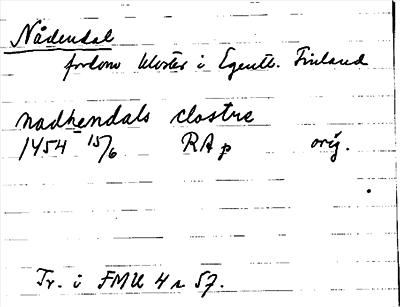 Nådendal
fordom kloster i Egentl. Finland
nadhendals clostre
1454 15/6 RA p orig.
Tr. i FMU 4 s 57.